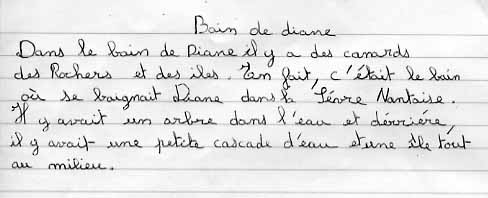 Bain de diane
Dans le bain de Diane il y a des canards
des Rochers et des iles. En fait, c'était le bain
où se baignait Diane dans la Sévre Nantaise.
Il y avait un arbre dans l'eau et dérriére,
il y avait une petite cascade d'eau et une île tout
au milieu.